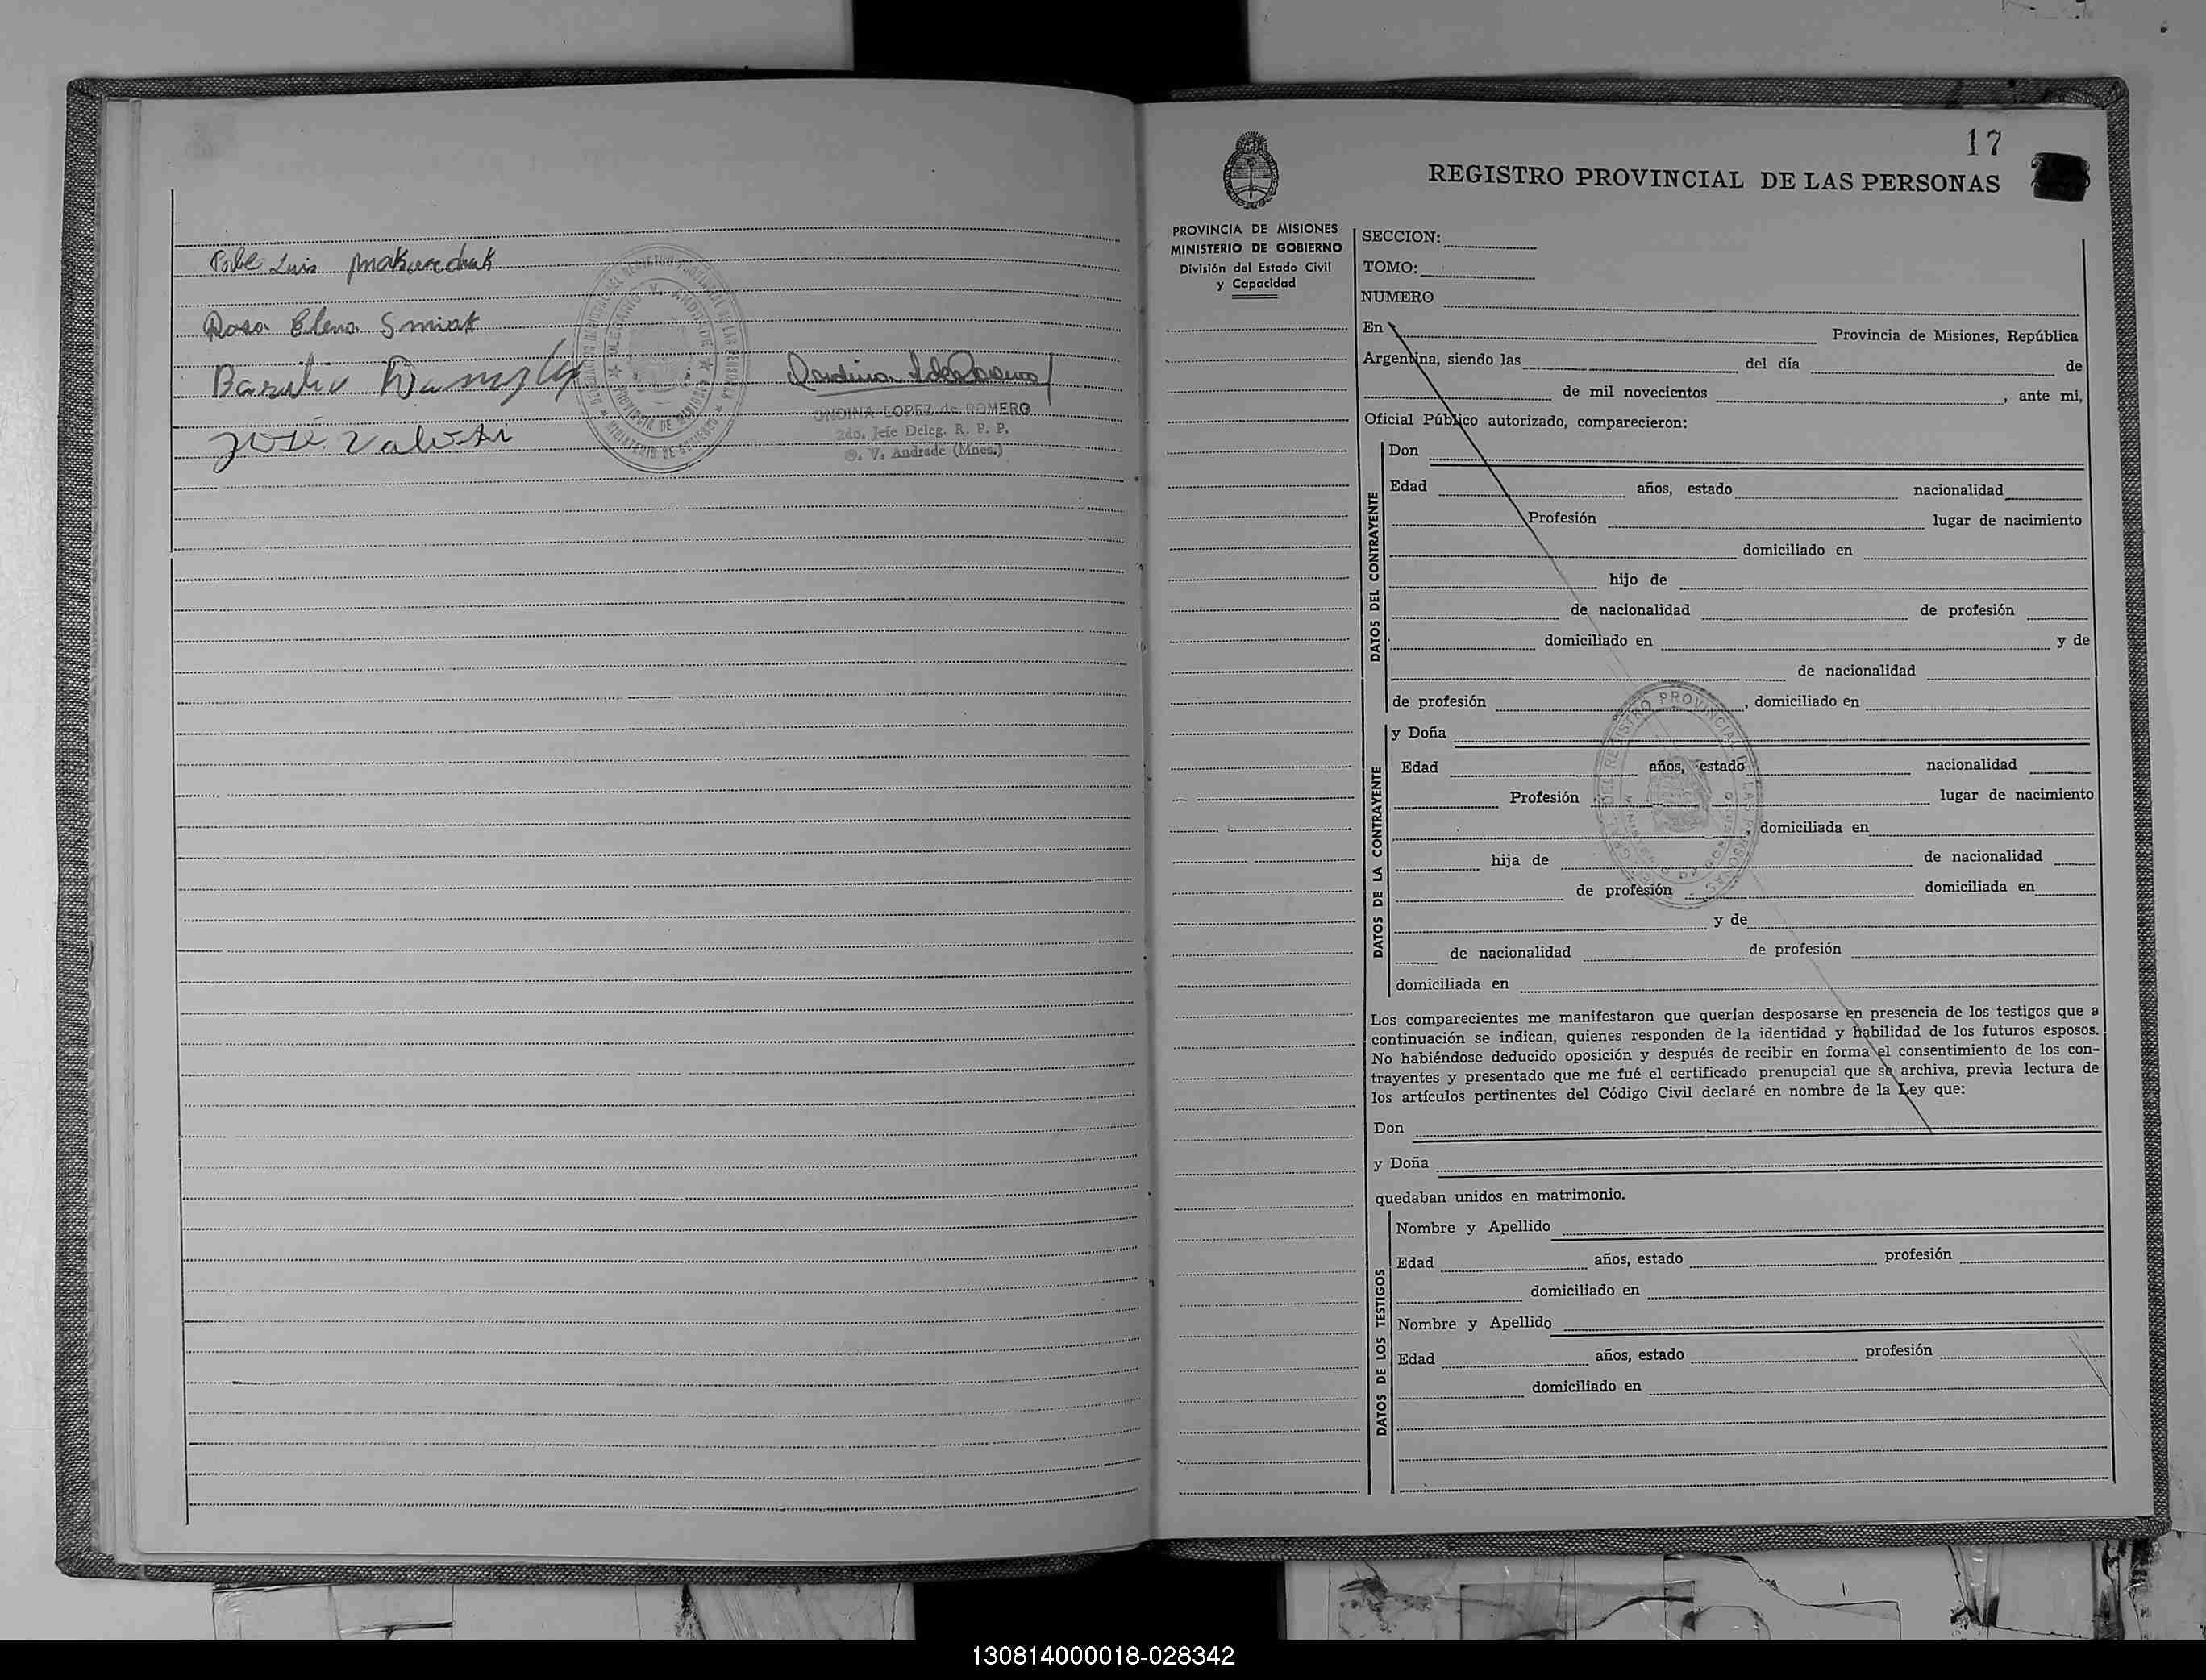 Luis
Rosa Elena Smiak
Basilio
José
ONDINA LOPEZ de ROMERO
2do. Jefe Deleg. R. P. P.
O. V. Andrade (Mnes.)
17
REGISTRO PROVINCIAL DE LAS PERSONAS
PROVINCIA DE MISIONES
MINISTERIO DE GOBIERNO
División del Estado Civil
y Capacidad
SECCION:
TOMO:
NUMERO
En Provincia de Misiones, República
Argentina, siendo las del día de
de mil novecientos , ante mi,
Oficial Público autorizado, comparecieron:
DATOS DEL CONTRAYENTE
Don
Edad años, estado nacionalidad
Profesión lugar de nacimiento
domiciliado en
hijo de
de nacionalidad de profesión
domiciliado en y de
de nacionalidad
de profesión , domiciliado en
DATOS DE LA CONTRAYENTE
y Doña
Edad años, estado nacionalidad
Profesión lugar de nacimiento
domiciliada en
hija de de nacionalidad
de profesión domiciliada en
y de
de nacionalidad de profesión
domiciliada en
Los comparecientes me manifestaron que querían desposarse en presencia de los testigos que a
continuación se indican, quienes responden de la identidad y habilidad de los futuros esposos.
No habiéndose deducido oposición y después de recibir en forma el consentimiento de los con-
trayentes y presentado que me fué el certificado prenupcial que se archiva, previa lectura de
los artículos pertinentes del Código Civil declaré en nombre de la Ley que:
Don
y Doña
quedaban unidos en matrimonio.
DATOS DE LOS TESTIGOS
Nombre y Apellido
Edad años, estado profesión
domiciliado en
Nombre y Apellido
Edad años, estado profesión
domiciliado en
130814000018-028342